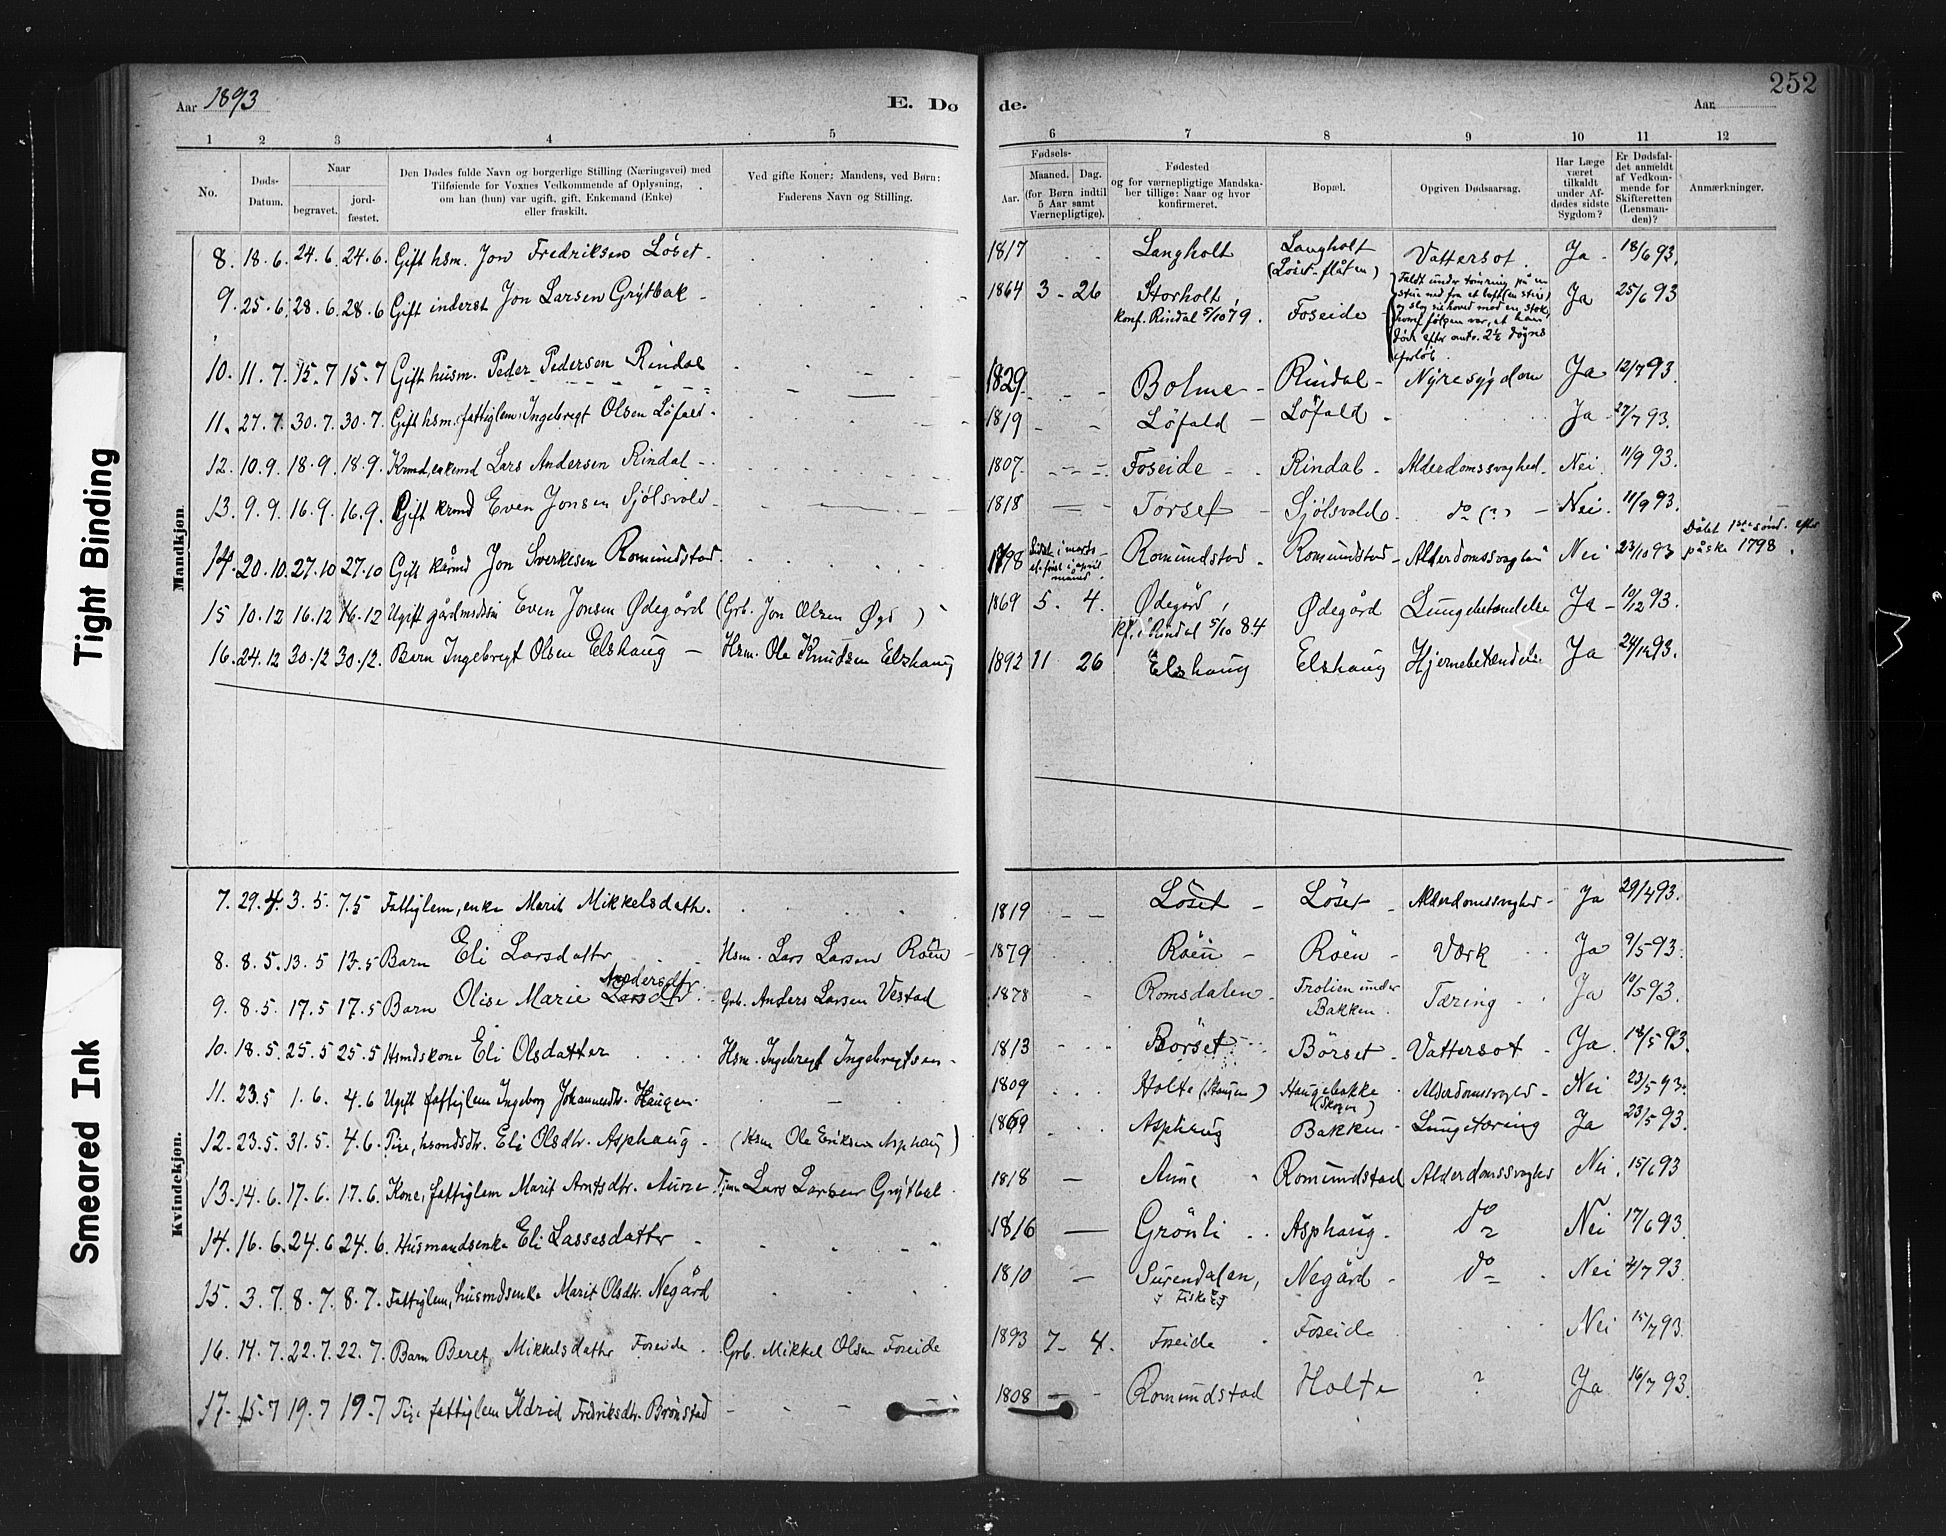 252
Aar 1893
E. Do
de.
Aar
1 2 3 4 5
6 7 8 9 10 11 12
No.
Døds-Datum.
Naar
begravet.
jord-fæstet.
Den Dødes fulde Navn og borgerlige Stilling (Næringsvei) med
Tilføiende for Voxnes Vedkommende af Oplysning,
om han (hun) var ugift, gift, Enkemand (Enke)
eller fraskilt.
Ved gifte Koner: Mandens, ved Børn:
Faderens Navn og Stilling.
Fødsels-
Aar.
Maaned. Dag.
(for Børn indtil
5 Aar samt
Værnepligtige).
Fødested
og for værnepligtige Mandska-
ber tillige: Naar og hvor
konfirmeret.
Bopæl.
Opgiven Dødsaarsag.
Har Læge
været
tilkaldt
under Af-
dødes sidste
Sygdom?
Er Dødsfal-
det anmeldt
af Vedkom-
mende for
Skifteretten
(Lensman-
den)?
Anmærkninger.
Mandkjøn.
8. 18.6. 24.6. 24.6. Gift hsm. Jon Fredriksen Löset. 1817 Langholt Langholt (Löset-flåten) Vattersot. Ja 18/6 93.
9. 25.6. 28.6. 28.6. Gift inderst Jon Larsen Grýtbak 1864 3 - 26 Storholt, konf. Rindal 5/10 79. Foseide Ja 25/6 93
Faldt under tömring på en
stue ned fra et loft (en stue)
og slog sit hoved mod en stok,
hvoraf følgen var, at han
døde efter omtr. 2½ døgns
forløb.
10. 11.7. 15.7 15.7 Gift husm. Peder Pedersen Rindal 1829 Bolme Rindal Nyresygdom Ja 12/7 93.
11. 27.7. 30.7. 30.7. Gift hsm. fattiglem Ingebregt Olsen Löfald. 1819 Löfald Löfald Ja 27/7 93.
12. 10.9. 18.9. 18.9. Kårmd, enkemd Lars Andersen Rindal 1807. Foseide Rindal Alderdomssvaghed Nei. 11/9 93.
13. 9.9. 16.9. 16.9. Gift kårmd Even Jonsen Sjölsvold 1818 Torset Sjölsvold do (?) Nei. 11/9 93.
14. 20.10. 27.10 27.10 Gift kårmd Jon Sverkesen Romundstad. 1798 Sidst i marts el. først i april måned. Romundstad Romundstad Alderdomssvaghed Nei 23/10 93 Döbt 1ste sönd. efter påske 1798.
15 10.12 16.12 16.12 Ugift gårdmdssön Even Jonsen Ødegård (Grb. Jon Olsen Øgd) 1869 5. 4. Ødegård, kf. i Rindal 5/10 84 Ødegård Lungebetændelse Ja 10/12 93.
16. 24.12 30.12 30.12. Barn Ingebregt Olsen Elshaug Hsm. Ole Knudsen Elshaug 1892 11 26 Elshaug Elshaug Hjernebetændelse Ja 24/12 93.
Kvindekjøn.
7. 29.4. 3.5. 7.5 Fattiglem, enke Marit Mikkelsdatr. 1819 Löset Löset Alderdomssvaghed Ja 29/4 93.
8. 8.5. 13.5 13.5 Barn Eli Larsdatter Hsm. Lars Larsen Röen 1879 Röen Röen Værk Ja 9/5 93.
9. 8.5. 17.5 17.5 Barn Olise Marie Larsdtr Andersdtr. Grb. Anders Larsen Vestad 1878 Romsdalen Trolien under Bakken. Tæring Ja 10/5 93.
10. 18.5. 25.5 25.5 Hsmdskone Eli Olsdatter Hsm. Ingebregt Ingebregtsen 1813 Börset Börset Vattersot Ja. 18/5 93.
11. 23.5 1.6. 4.6 Ugift fattiglem Ingeborg Johannesdtr. Haugen 1809 Holte (Haugen) Haugebakke (Skogen) Alderdomssvaghd Nei 23/5 93.
12. 23.5. 31.5. 4.6. Pige, hsmdsdtr. Eli Olsdtr. Asphaug (Hsm Ole Eriksen Asphaug) 1869 Asphaug Bakken Lungetæring Ja 23/5 93.
13. 14.6. 17.6. 17.6. Kone, fattiglem Marit Arntsdtr. Aune Lars Larsen Grýtbak 1818 Aune Romundstad Alderdomssvaghed Nei. 15/6 93
14. 16.6. 24.6 24.6. Husmandsenke Eli Lassesdatter 1816 Grönli Asphaug do Nei 17/6 93.
15. 3.7. 8.7. 8.7. Fattiglem, husmdsenke Marit Olsdtr. Negård 1810 Surendalen, Negård do Nei 4/7 93.
16. 14.7. 22.7. 22.7. Barn Beret Mikkelsdatter Foseide. Grb. Mikkel Olsen Foseide 1893 7 4. Foseide Foseide Nei 15/7 93.
17. 15.7 19.7 19.7 Pige fattiglem Ildrid Fredriksdtr. Brönstad 1808 Romundstad Holte ? Ja 16/7 93.
Tight Binding
Smeared Ink